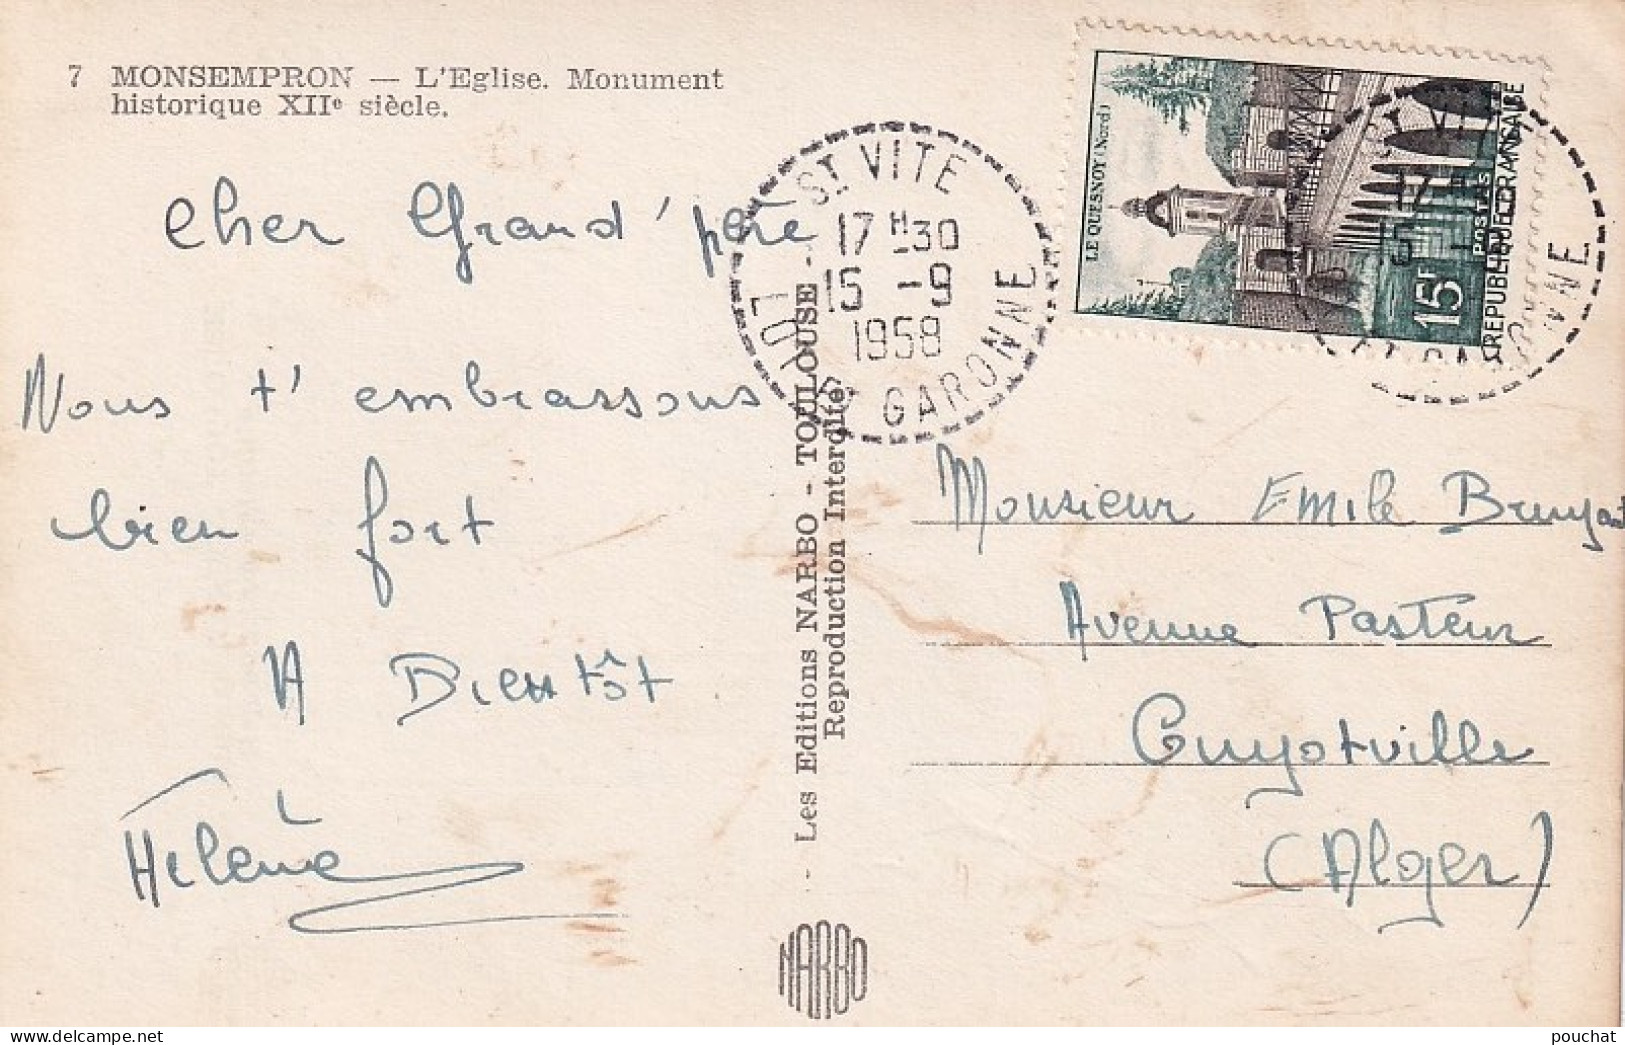 7 MONSEMPRON — L'Eglise. Monument
historique XIIe siècle.
Cher Grand'père
Nous t'embrassons
bien fort
A Bientôt
Hélène
ST VITE
17 H 30
15 -9
1958
LOT ET GARONNE
LE QUESNOY (Nord)
15F
POSTES
REPUBLIQUE FRANÇAISE
- Les Editions NARBO - TOULOUSE -
Reproduction Interdite
NARBO
Monsieur Emile Bruyant
Avenue Pasteur
Guyotville
(Alger)
pouchat